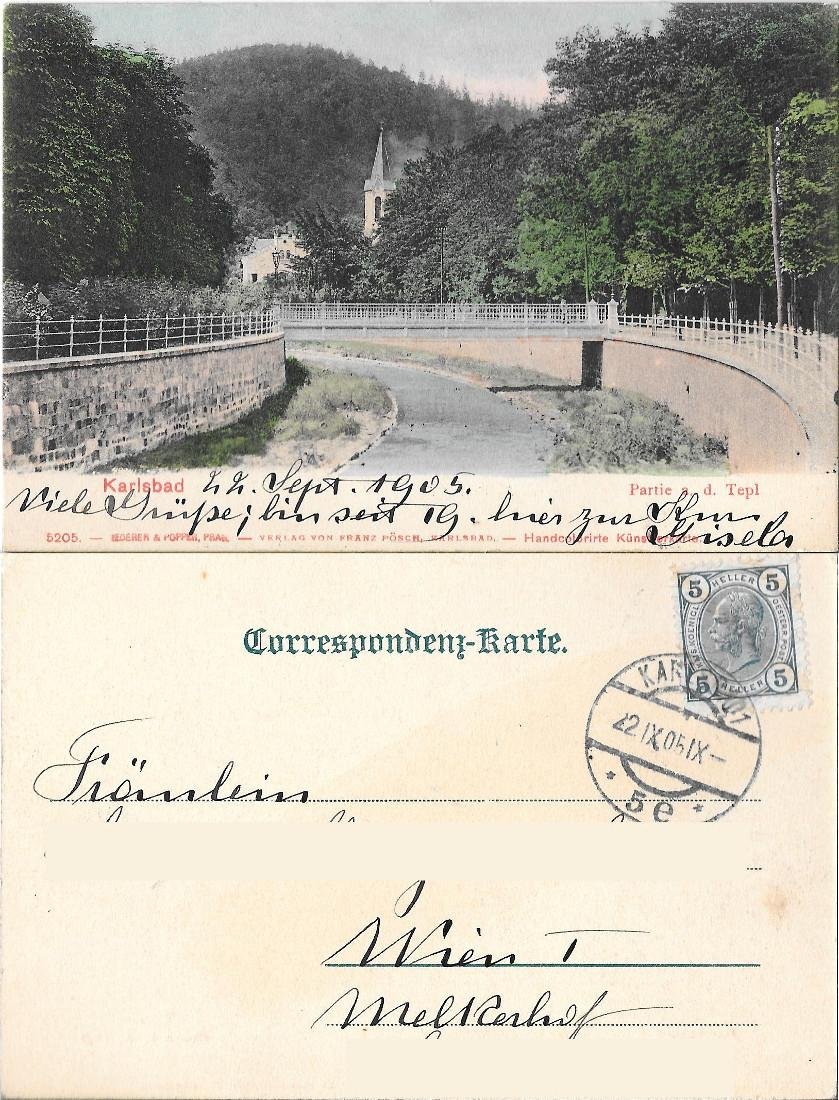 Karlsbad 22. Sept. 1905. Partie a. d. Tepl
Viele Grüße; bin seit 19. hier zur Kur
Gisela
5205. — LEDERER & POPPER, PRAG. — VERLAG VON FRANZ PÖSCH, KARLSBAD. — Handcolorirte Künstlerkarte
Correspondenz-Karte.
5 HELLER 5
KAIS. KOENIGL. OESTERR. POST
5 HELLER 5
KARLSBAD 1
22 IX 05 IX–
* 5e *
Fräulein
Wien I
Melkerhof